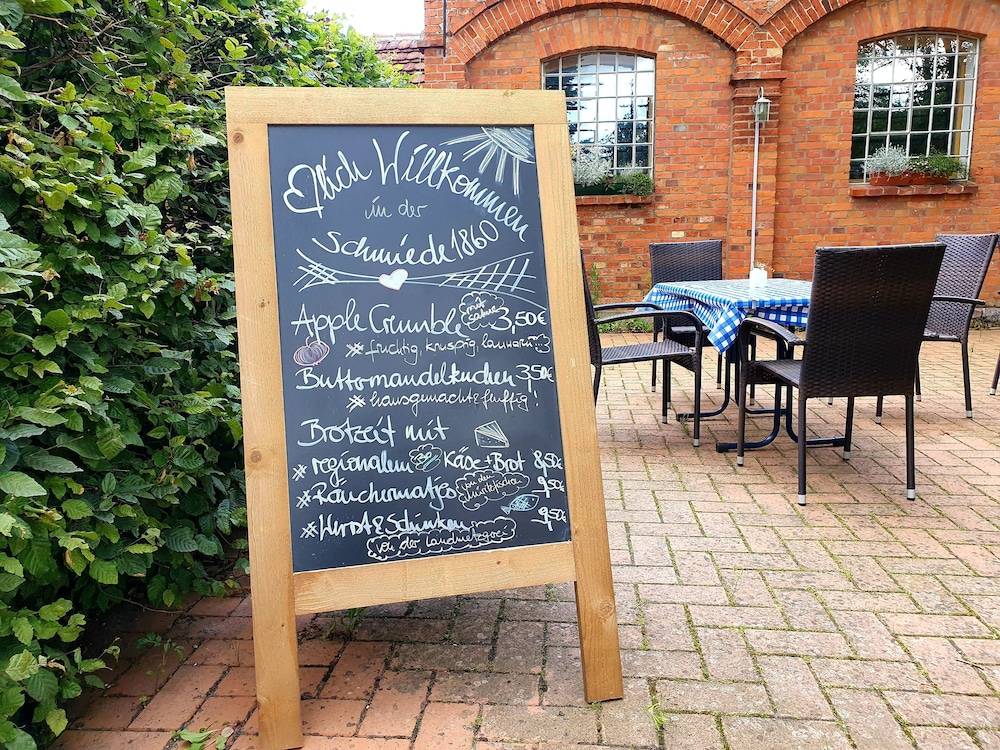 Herzlich Willkommen
in der
Schmiede 1860
Apple Crumble mit Sahne 3,50€
# fruchtig, knusprig, lauwarm
Buttermandelkuchen 3,50€
# hausgemacht & fluffig!
Brotzeit mit
# regionalem Käse + Brot 8,50€
# Räuchermatjes von den 9,50€
# Wurst & Schinken 9,50€
von der Landmetzgerei